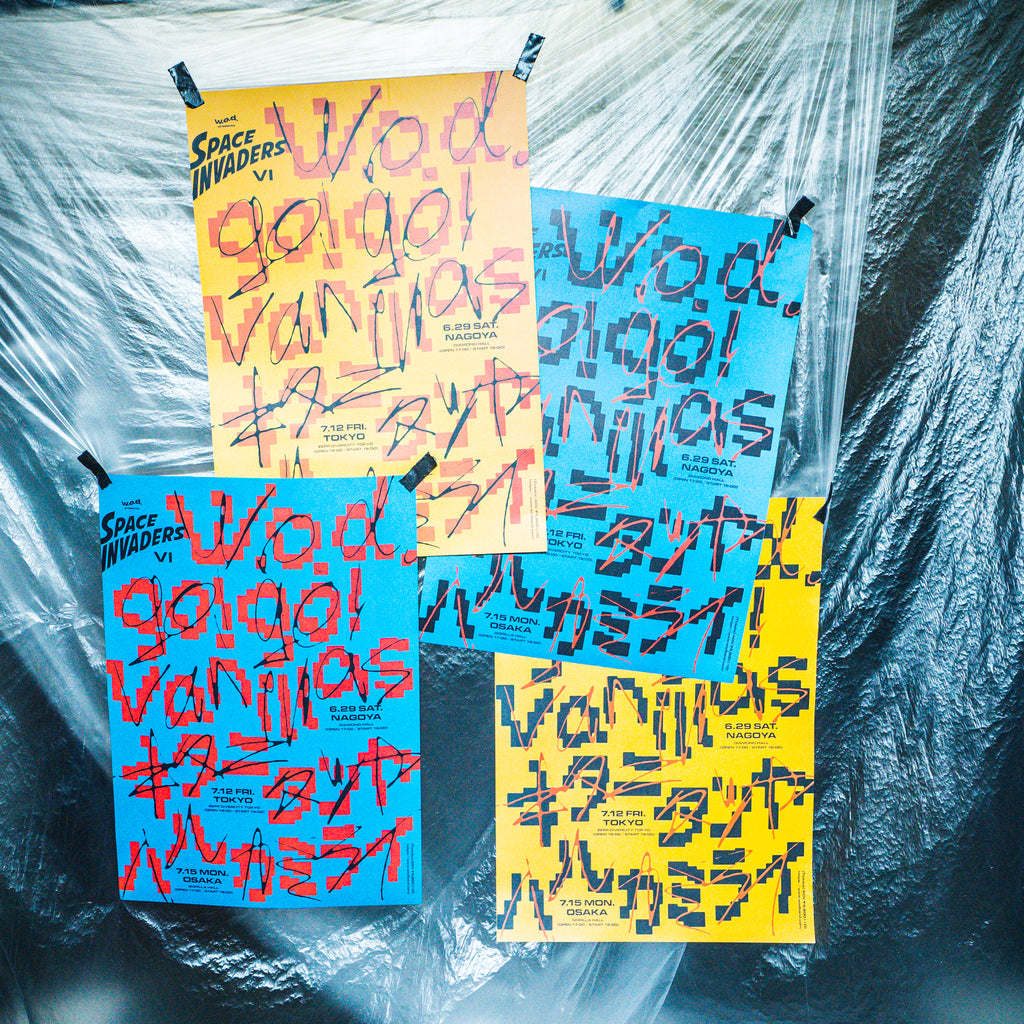 w.o.d.
presents
SPACE
INVADERS
VI
w.o.d.
go!go!
vanillas
6.29 SAT.
NAGOYA
DIAMOND HALL
(OPEN 17:00 / START 18:00)
キタニタツヤ
7.12 FRI.
TOKYO
ZEPP DIVERCITY TOKYO
(OPEN 18:00 / START 19:00)
ミライ
ERS
VI
w.o.d.
o!go!
anillas
6.29 SAT.
NAGOYA
DIAMOND HALL
(OPEN 17:00 / START 18:00)
ニタツヤ
.12 FRI.
TOKYO
ハルカミライ
7.15 MON.
OSAKA
GORILLA HALL
(OPEN 17:00 / START 18:00)
w.o.d.
presents
SPACE
INVADERS
VI
w.o.d.
go!go!
vanillas
6.29 SAT.
NAGOYA
DIAMOND HALL
(OPEN 17:00 / START 18:00)
キタニタツヤ
7.12 FRI.
TOKYO
ZEPP DIVERCITY TOKYO
(OPEN 18:00 / START 19:00)
ハルカミライ
7.15 MON.
OSAKA
GORILLA HALL
(OPEN 17:00 / START 18:00)
d.
vanillas
6.29 SAT.
NAGOYA
DIAMOND HALL
(OPEN 17:00 / START 18:00)
キタニタツヤ
7.12 FRI.
TOKYO
ZEPP DIVERCITY TOKYO
(OPEN 18:00 / START 19:00)
ハルカミライ
7.15 MON.
OSAKA
GORILLA HALL
(OPEN 17:00 / START 18:00)